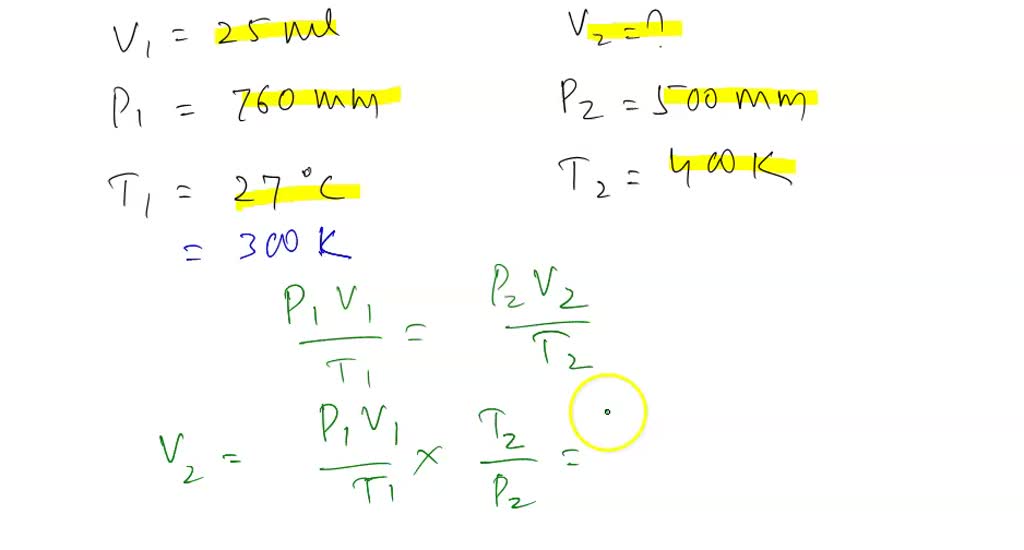 V₁ = 25 ml V₂ = ?
P₁ = 760 mm P₂ = 500 mm
T₁ = 27°C T₂ = 400 K
= 300 K
P₁ V₁ / T₁ = P₂ V₂ / T₂
V₂ = P₁ V₁ / T₁ × T₂ / P₂ =